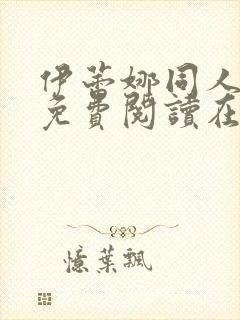 伊蒂娜同人
免費閱讀在
憶葉飄